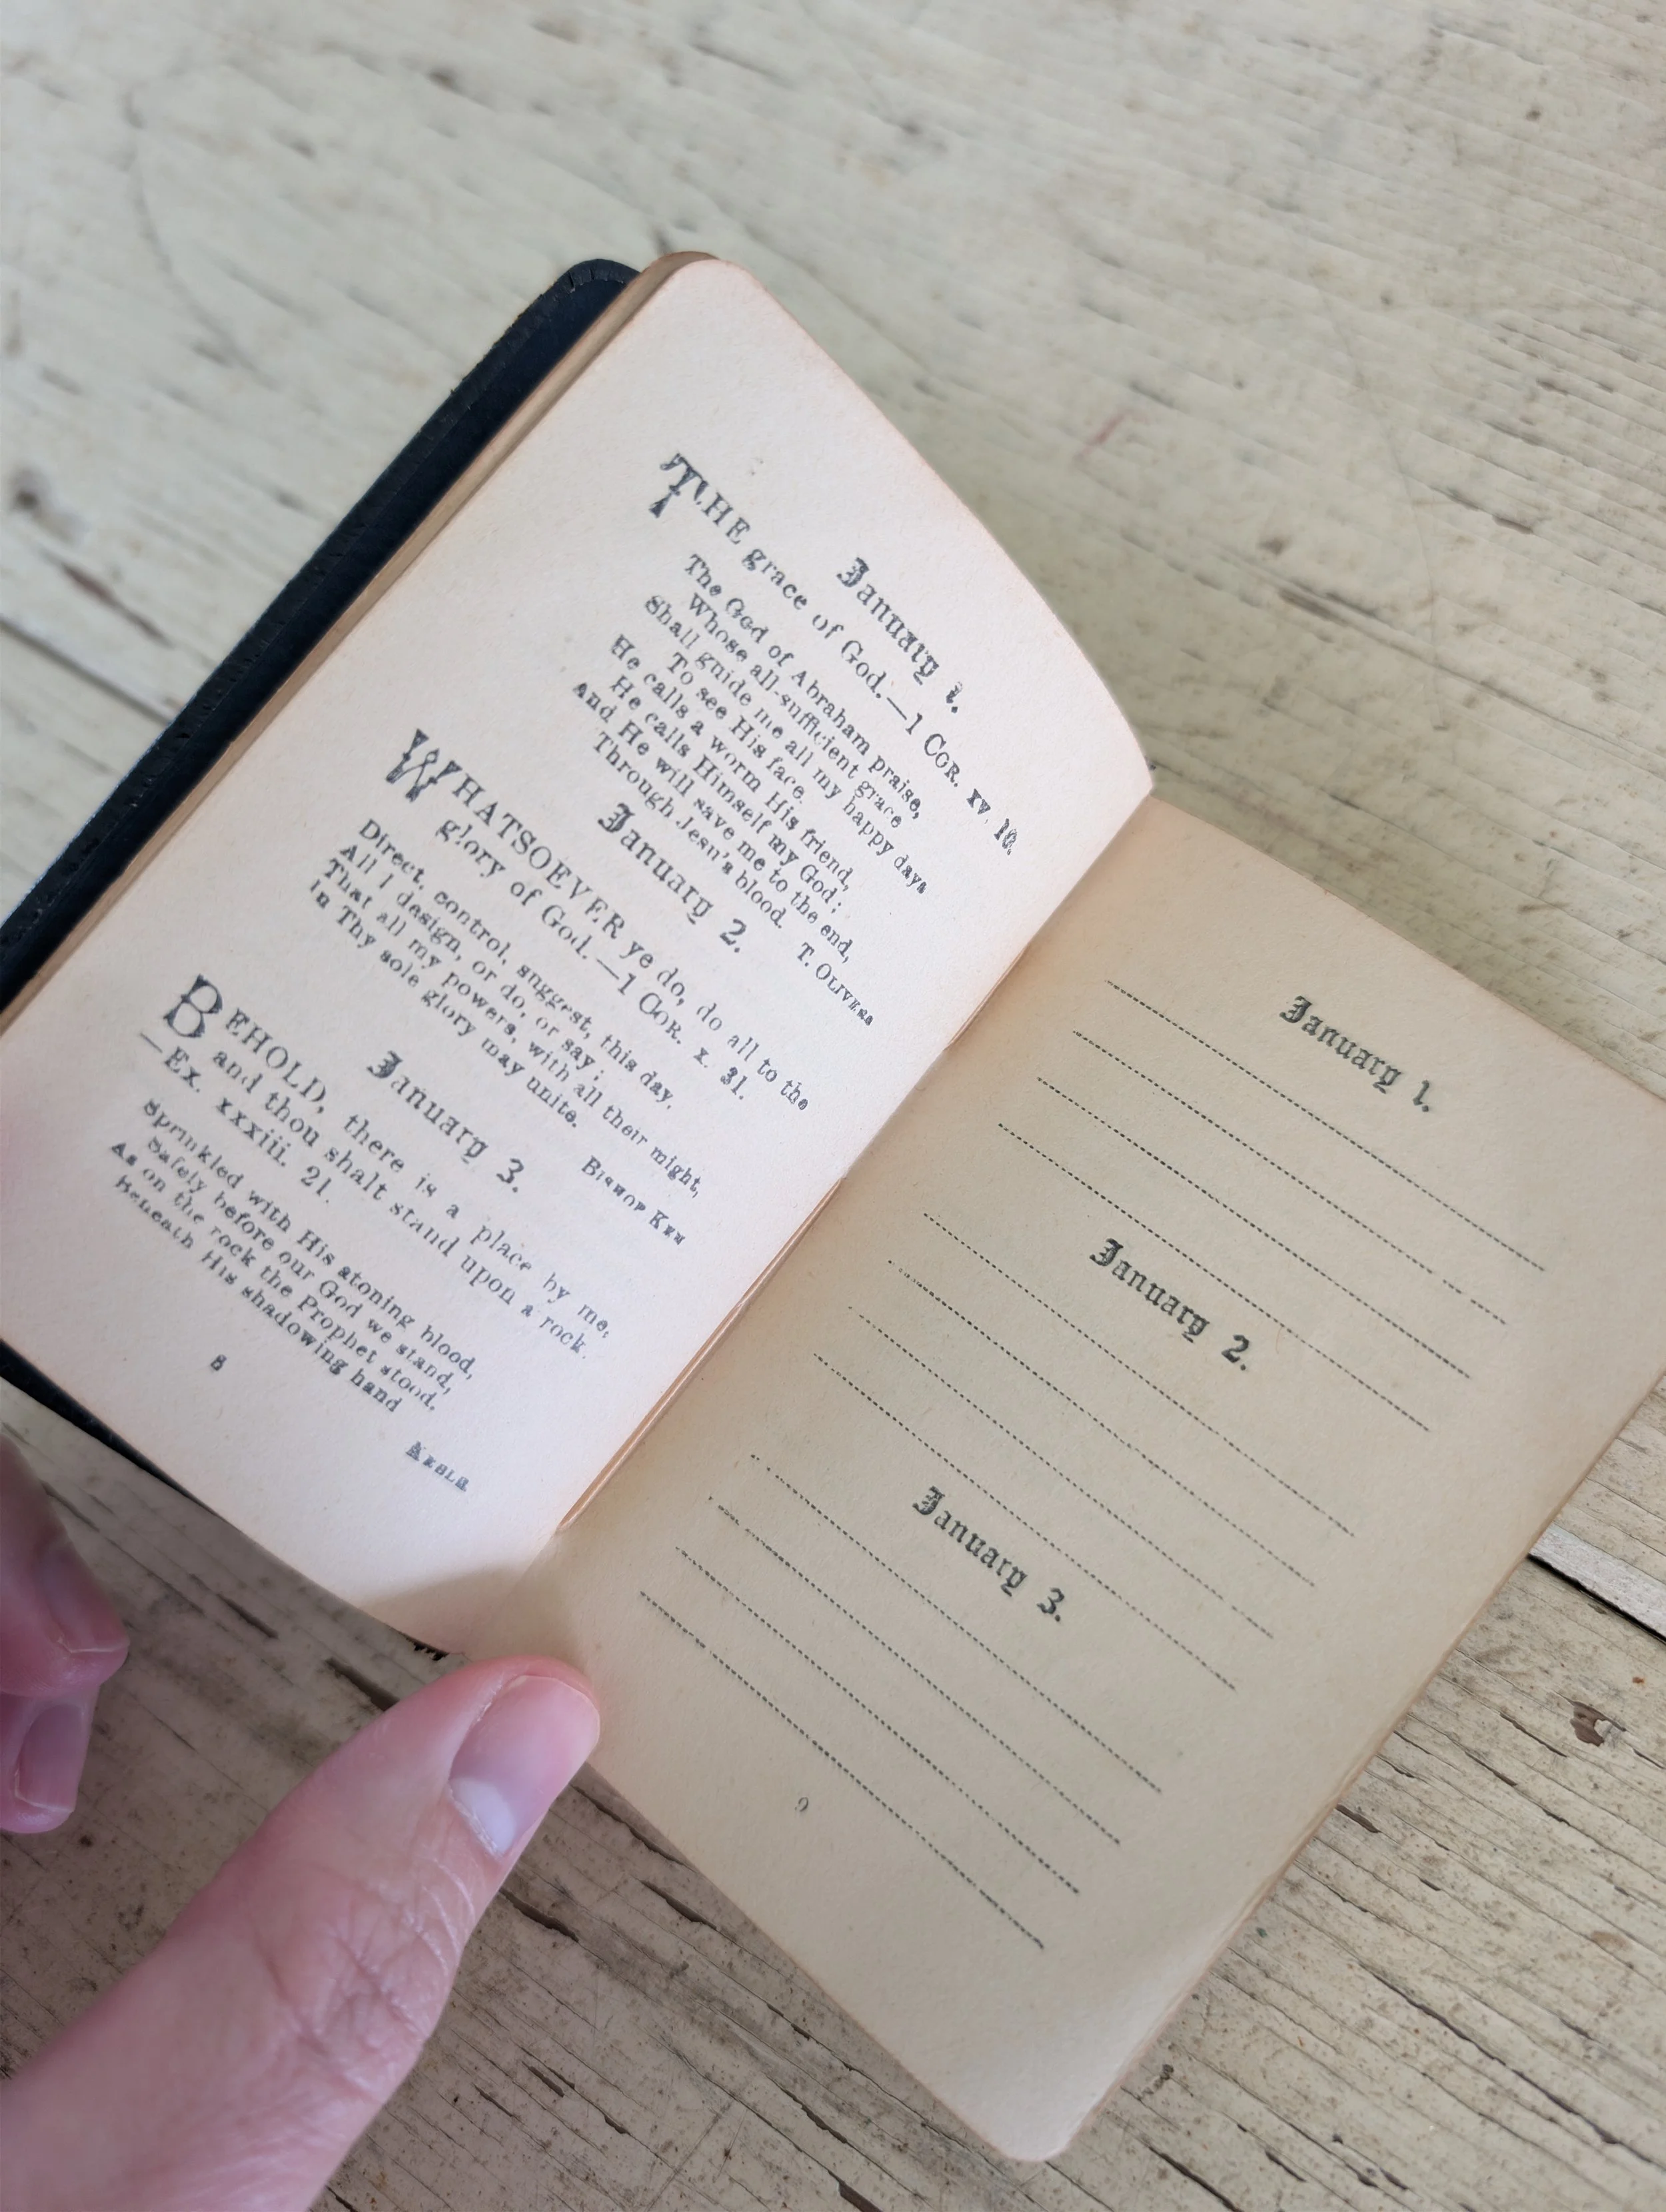 January 1.
THE grace of God.—1 COR. xv. 10.
The God of Abraham praise,
Whose all-sufficient grace
Shall guide me all my happy days
To see His face.
He calls a worm His friend,
He calls Himself my God;
And He will save me to the end,
Through Jesu's blood.
T. OLIVERS
January 2.
WHATSOEVER ye do, do all to the
glory of God.—1 COR. x. 31.
Direct, control, suggest, this day,
All I design, or do, or say;
That all my powers, with all their might,
In Thy sole glory may unite.
BISHOP KEN
January 3.
BEHOLD, there is a place by me,
and thou shalt stand upon a rock.
—Ex. xxxiii. 21.
Sprinkled with His atoning blood,
Safely before our God we stand,
As on the rock the Prophet stood,
Beneath His shadowing hand
KEBLE
8
January 1.
January 2.
January 3.
9